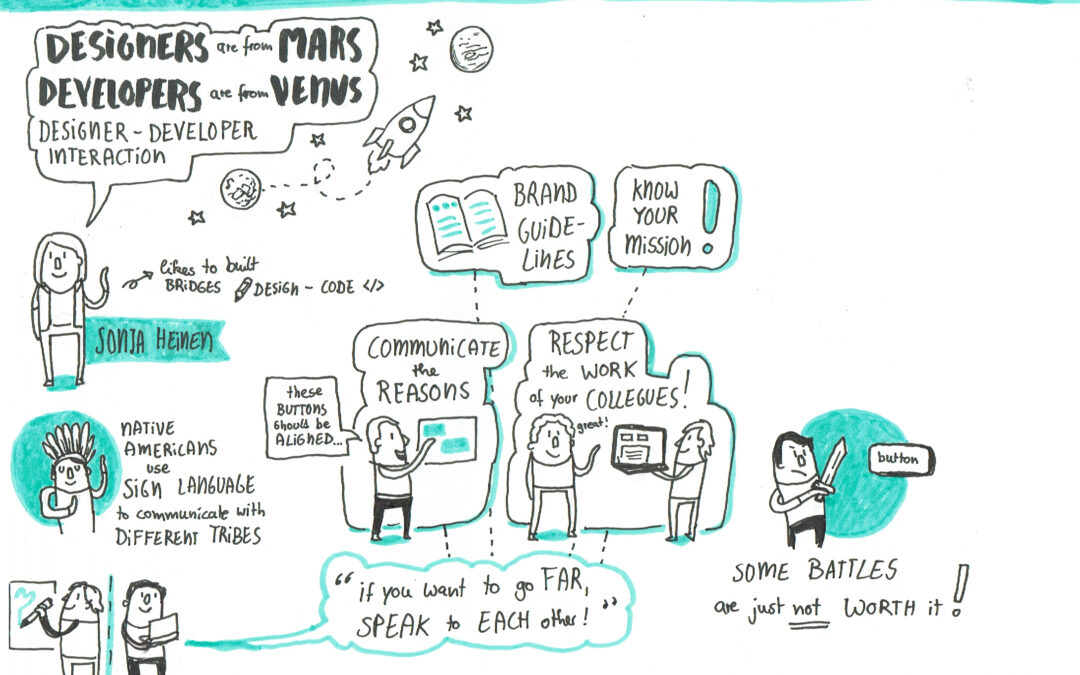 DESIGNERS are from MARS
DEVELOPERS are from VENUS
DESIGNER - DEVELOPER
INTERACTION
likes to built
BRIDGES DESIGN - CODE </>
SONJA HEINEN
BRAND
GUIDE-
LINES
KNOW
YOUR
MISSION!
COMMUNICATE
the
REASONS
these
BUTTONS
should be
ALIGNED...
RESPECT
the WORK
of your COLLEGUES!
great!
NATIVE
AMERICANS
use
SIGN LANGUAGE
to communicate with
DIFFERENT TRIBES
button
SOME BATTLES
are just not WORTH it!
“if you want to go FAR,
SPEAK to EACH other!”